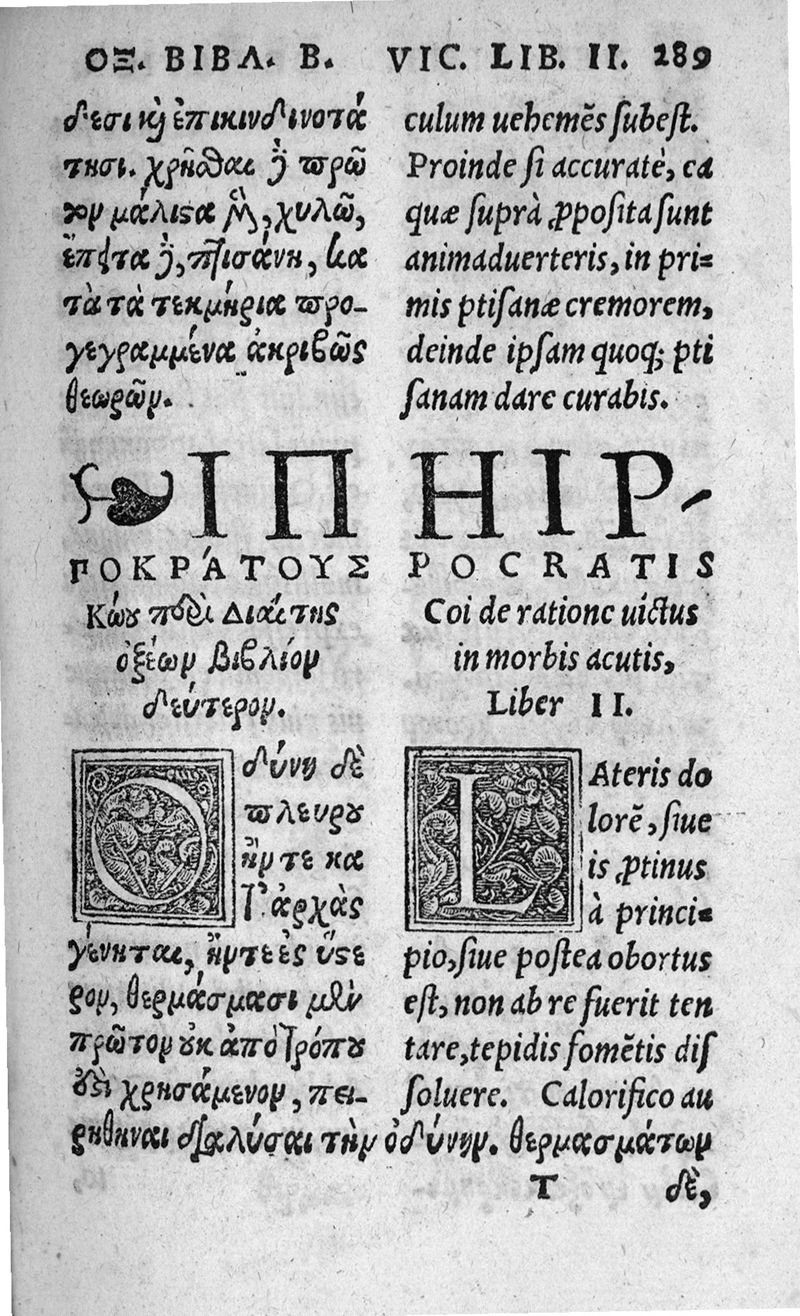 ΟΞ. ΒΙΒΛ. Β. VIC. LIB. II. 289
δεσι καὶ ἐπικινδινοτά
τησι. χρῆσθαι δὲ πρῶ
τον μάλιστα μὲν, χυλῶ,
ἔπειτα δὲ, πτισάνη, κα
τὰ τὰ τεκμήρια προ-
γεγραμμένα ἀκριβῶς
θεωρῶν.
culum uehemẽs subest.
Proinde si accuratè, ea
quæ suprà ꝓposita sunt
animaduerteris, in pri=
mis ptisanæ cremorem,
deinde ipsam quoq; pti
sanam dare curabis.
ΙΠ
ΠΟΚΡΆΤΟΥΣ
Κώου περὶ Διαίτης
ὀξέων βιβλίον
δεύτερον.
HIP-
POCRATIS
Coi de ratione uictus
in morbis acutis,
Liber II.
Οδύνη δὲ
πλευροῦ
ἤντε κα
τ' ἀρχὰς
γένηται, ἤντε ἐς ὕστε
ρον, θερμάσμασι μὲν
πρῶτον οὐκ ἀπὸ τρόπου
ἐστὶ χρησάμενον, πει-
ρηθῆναι διαλύσαι τὴν ὀδύνην. θερμασμάτων
LAteris do
lorẽ, siue
is ꝓtinus
à princi=
pio, siue postea obortus
est, non ab re fuerit ten
tare, tepidis fomẽtis dis
soluere. Calorifico au
T δὲ,